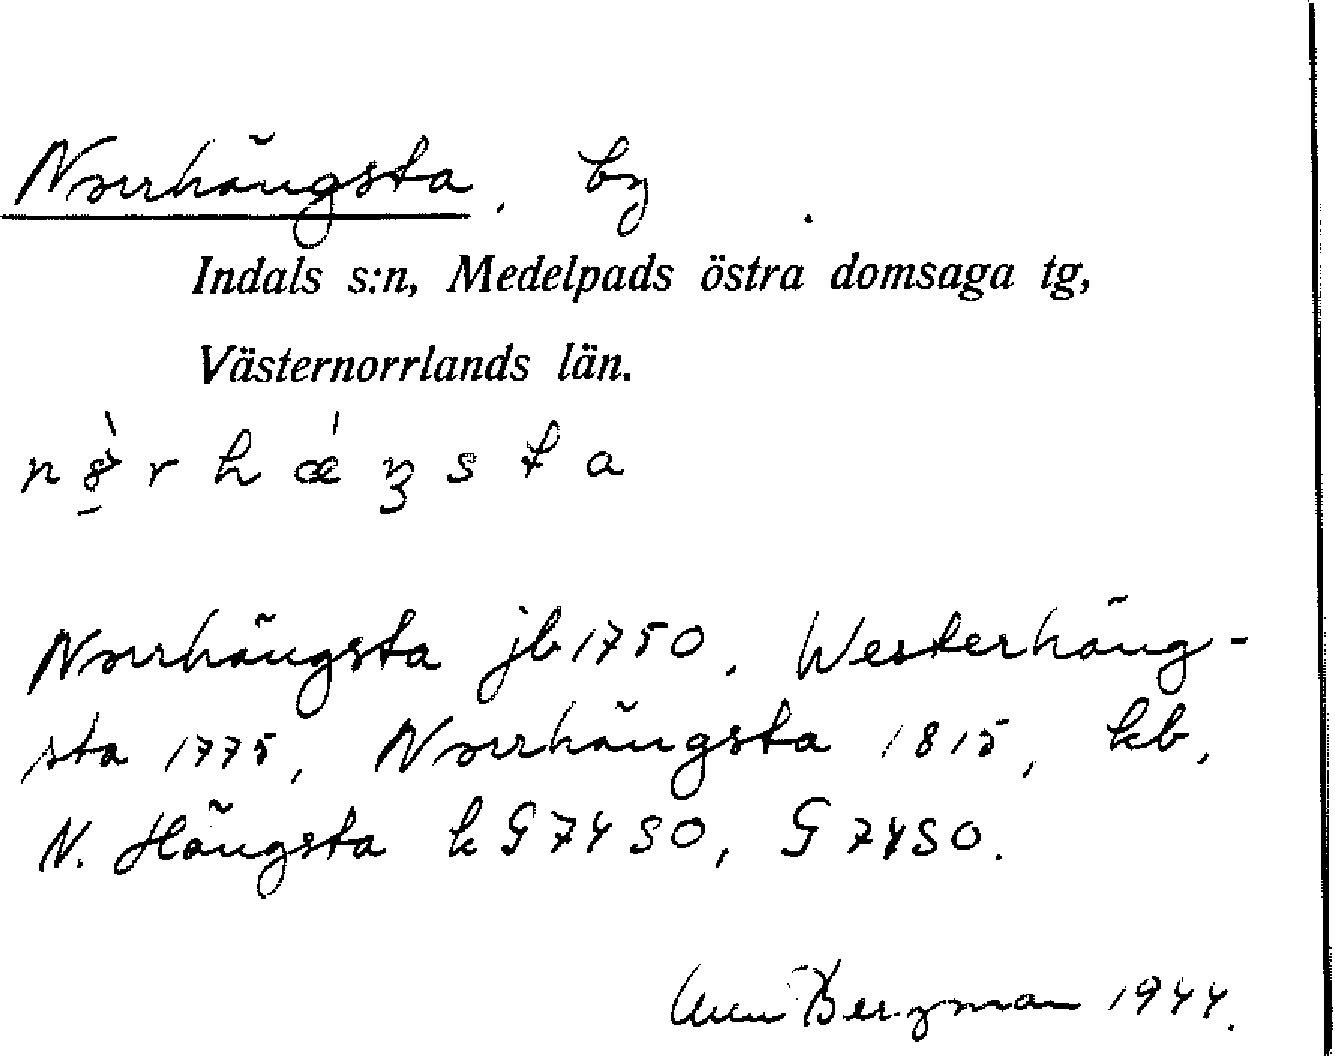 Norrhängsta, by
Indals s:n, Medelpads östra domsaga tg,
Västernorrlands län.
Norrhängsta jb 1750, Westerhäng-
sta 1775, Norrhängsta 1815, kb,
N. Hängsta k G 74 SO, G 74 SO.
Bergman 1944.